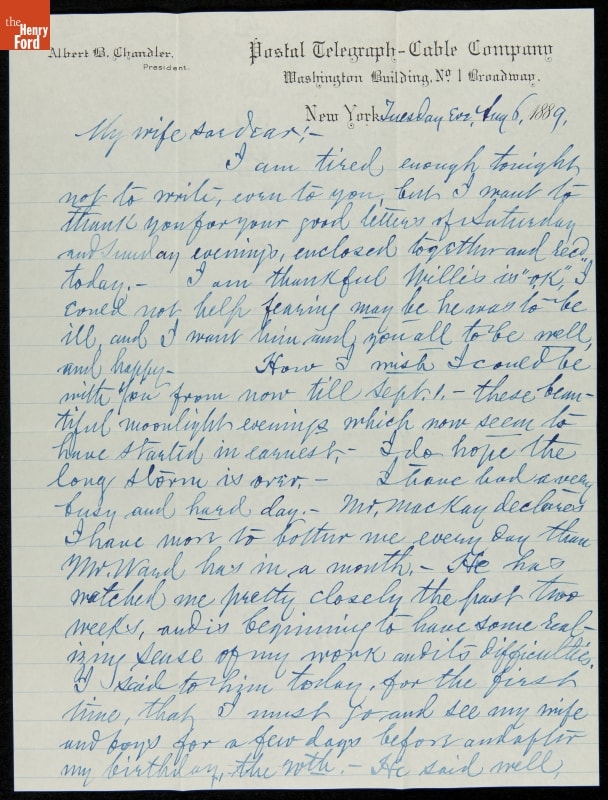 the
Henry
Ford
Albert B. Chandler,
President.
Postal Telegraph-Cable Company
Washington Building, No 1 Broadway.
New York, Tuesday Eve, Aug 6, 1889.
My wife so dear;-
I am tired enough tonight
not to write, even to you, but I want to
thank you for your good letters of Saturday
and Sunday evenings, enclosed together and recd
today.- I am thankful Willis is "ok", I
could not help fearing may be he was to be
ill, and I want him and you all to be well,
and happy- How I wish I could be
with you from now till Sept. 1.- these beau-
tiful moonlight evenings which now seem to
have started in earnest,- I do hope the
long storm is over.- I have had a very
busy and hard day.- Mr. Mackay declares
I have more to bother me every day than
Mr. Ward has in a month.- He has
watched me pretty closely the past two
weeks, and is beginning to have some real-
izing sense of my work and its difficulties.
I said to him today, for the first
time, that I must go and see my wife
and boys for a few days before and after
my birthday, the 20th.- He said well,